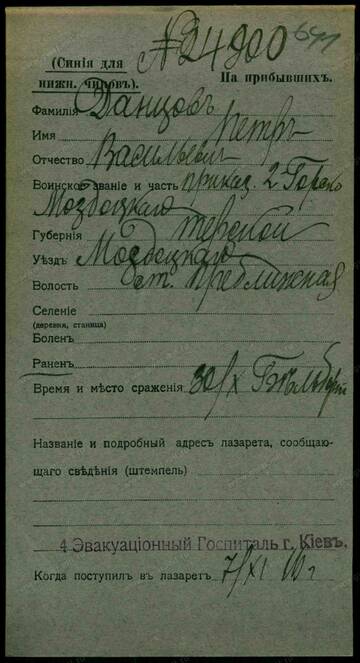 № 24900 641
(Синія для
нижн. чиновъ).
На прибывшихъ.
Фамилія Данцовъ
Имя Петръ
Отчество Васильевъ
Воинское званіе и часть приказ. 2 Горско
Моздоцкаго
Губернія Терской
Уѣздъ Моздоцкаго
Волость ст. Преближная
Селеніе
(деревня, станица)
Боленъ
Раненъ
Время и мѣсто сраженія 30/X
Названіе и подробный адресъ лазарета, сообщаю-
щаго свѣдѣнія (штемпель)
4 Эвакуаціонный Госпиталь г. Кіевъ.
Когда поступилъ въ лазаретъ 7/XI 16 г